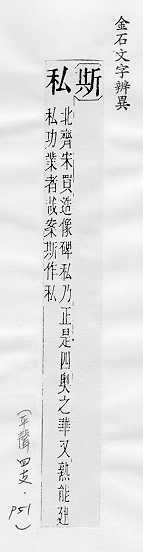 金石文字辨異
斯
私
北齊宋買造像碑私乃正是四奧之華又熟能建
私功業者哉案斯作私
(平聲 四支·P51)